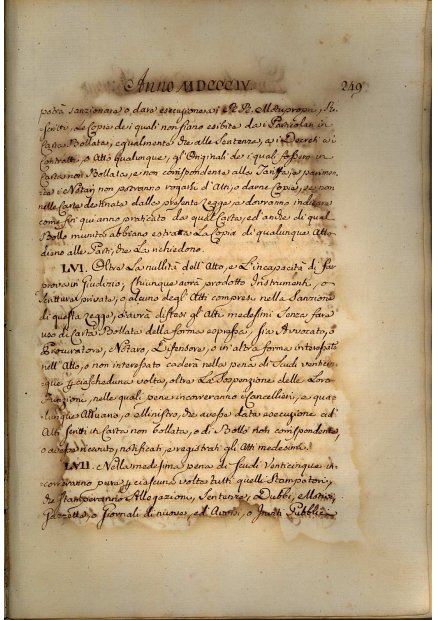 Anno MDCCCIV. 249
potrà sanzionare, o dare esecuzione a i RR. Motuproprj, Re
scritti, Le Copie de i quali non siano esibite da i Particolari in
Carta Bollata, egualmente che alle Sentenze, a i Decreti a i
Contratti, o Atto qualunque, gl' Originali de i quali fossero in
Carta non Bollata, e non corrispondente alla Tariffa, e parimen
te i Notari non potranno rogarsi d' Atti, o darne Copie, se non
nelle Carte destinate dalla presente Legge, e dovranno indicare
come fin qui anno praticato da qual Carta, ed anche di qual
Bollo munito abbiano estratta La Copia di qualunque Atto
diano alle Parti, che La richiedono.
LVI. Oltre La nullità dell' Atto, e L' incapacità di far
prova in Giudizio, Chiunque avrà prodotto Instrumenti, o
Scritture private, o alcuno degl' Atti compresi nella Sanzione
di questa Legge, o avrà disteso gli Atti medesimi Senza fare
uso di Carta Bollata della forma espressa, sia Avvocato, o
Procuratore, Notaro, Difensore, o in altra forma interessato
nell' Atto, o non interessato caderà nella pena di Scudi venticin
que p ciascheduna volta, oltre La Sospenzione delle Loro
Funzioni, nelle quali pene incorreranno i Cancellieri, e qua
lunque Attuario, o Ministro, che avesse data esecuzione ad
Atti scritti in Carta non bollata, o di Bollo non corrispondente,
o avesse ricevuti, notificati, e registrati gli Atti medesimi.
LVII. Nella medesima pena di Scudi Venticinque in-
correranno pure p ciascuna volta tutti quelli Stampatori,
che stamperanno Allegazioni, Sentenze, Dubbi, Motivi,
Gazzette, o Giornali di nuove, ed Avvisi, o Inviti Pubblici